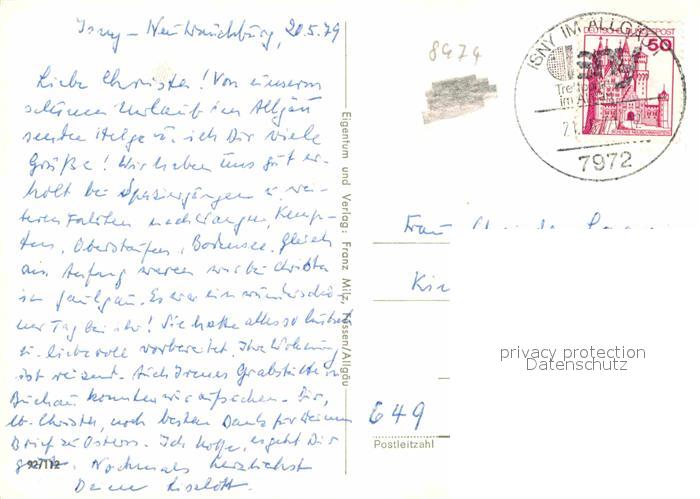 Isny – Neutrauchburg, 20.5.79
Liebe Christa! Von unserm
schönen Urlaub im Allgäu
senden Helga u. ich Dir viele
Grüße! Wir haben uns gut er-
holt bei Spaziergängen u. wei-
teren Fahrten nach Wangen, Kemp-
ten, Oberstaufen, Bodensee. Gleich
am Anfang waren wir bei Christa
in Saulgau. Es war ein wunderschö-
ner Tag bei ihr! Sie hatte alles so hübsch
u. liebevoll vorbereitet. Ihre Wohnung
ist reizend. Auch Irenes Grabstätte in
Buchau konnten wir aufsuchen. Dir,
lb. Christa, noch besten Dank für Deinen
Brief zu Ostern. Ich hoffe, es geht Dir
gut. Nochmals herzlichst
Deine Liselott.
92/112
Eigentum und Verlag: Franz Milz, Füssen/Allgäu
8474
ISNY IM ALLGÄU
7972
DEUTSCHE BUNDESPOST
50
Frau
649
Postleitzahl
privacy protection
Datenschutz